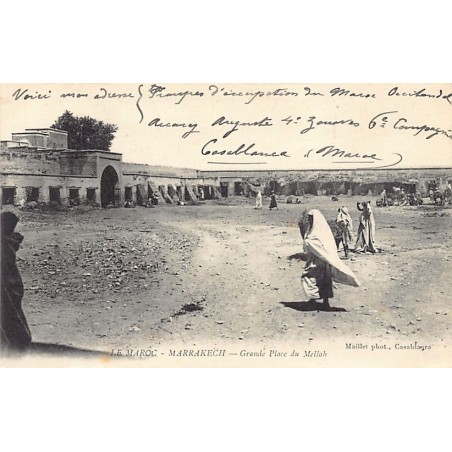 Voici mon adresse { Troupes d'occupation du Maroc Occidental
Auguste 4e Zouaves 6e Compagnie
Casablanca Maroc
LE MAROC - MARRAKECH — Grande Place du Mellah
Maillet phot., Casablanca